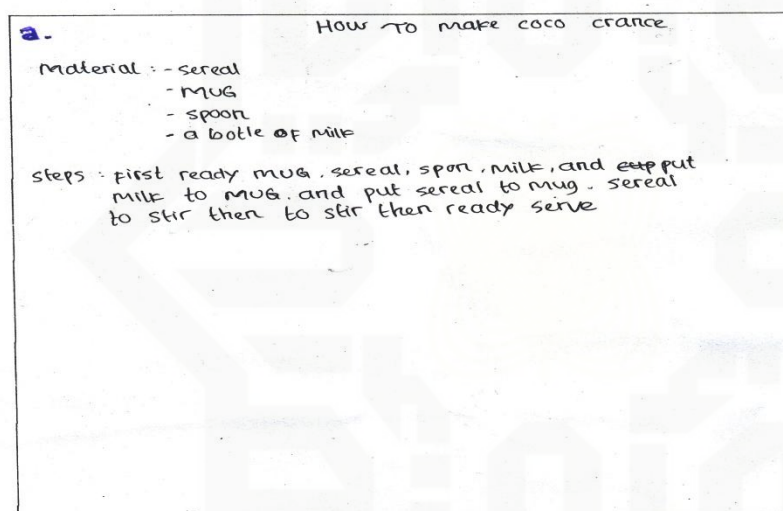 a.
How To make coco crance
Material : - sereal
- MUG
- spoon
- a botle of Milk
steps : first ready MUG. sereal, spon, milk, and cup put
milk to MUG. and put sereal to mug. sereal
to stir then to stir then ready serve